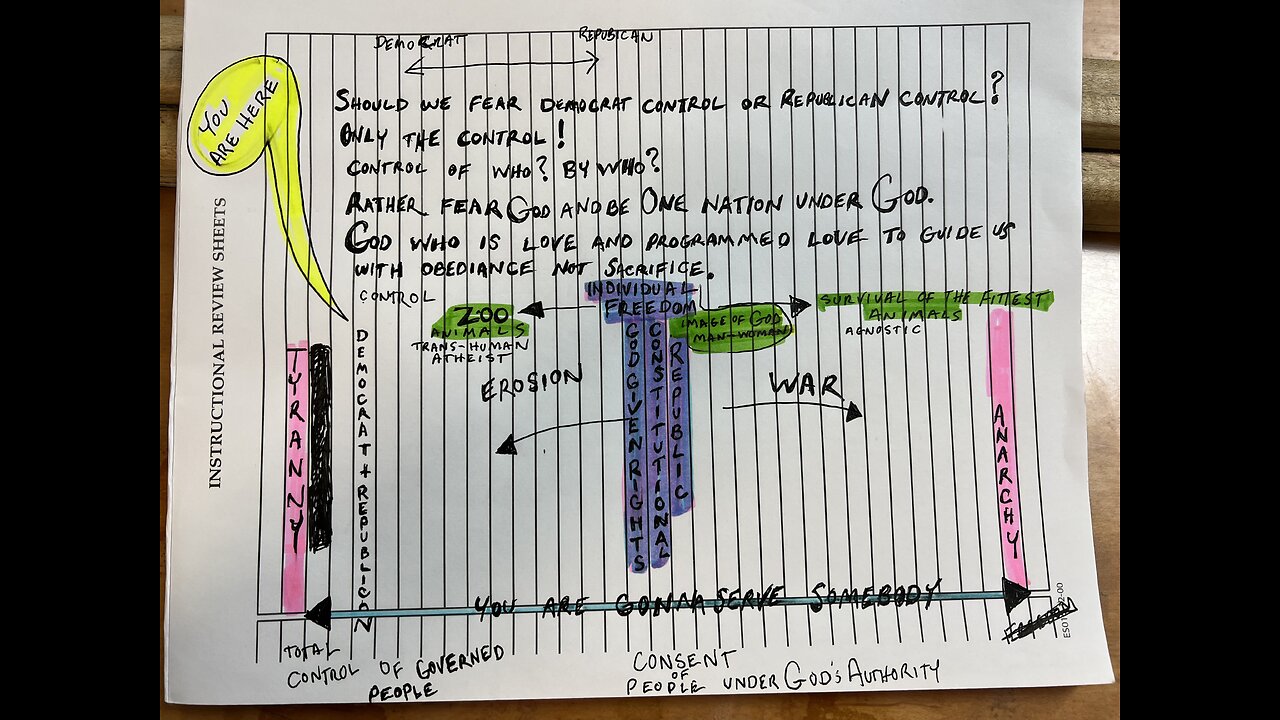 DEMOCRAT REPUBICAN
YOU
ARE HERE
SHOULD WE FEAR DEMOCRAT CONTROL OR REPUBLICAN CONTROL?
ONLY THE CONTROL!
CONTROL OF WHO? BY WHO?
RATHER FEAR GOD AND BE ONE NATION UNDER GOD.
GOD WHO IS LOVE AND PROGRAMMED LOVE TO GUIDE US
WITH OBEDIANCE NOT SACRIFICE.
INSTRUCTIONAL REVIEW SHEETS
CONTROL
INDIVIDUAL
FREEDOM
ZOO
ANIMALS
TRANS-HUMAN
ATHEIST
IMAGE OF GOD
MAN-WOMAN
SURVIVAL OF THE FITTEST
ANIMALS
AGNOSTIC
TYRANNY
DEMOCRAT + REPUBLICAN
EROSION
GOD GIVEN RIGHTS
CONSTITUTIONAL
REPUBLIC
WAR
ANARCHY
YOU ARE GONNA SERVE SOMEBODY
TOTAL
CONTROL OF GOVERNED
PEOPLE
CONSENT
OF
PEOPLE UNDER GOD'S AUTHORITY